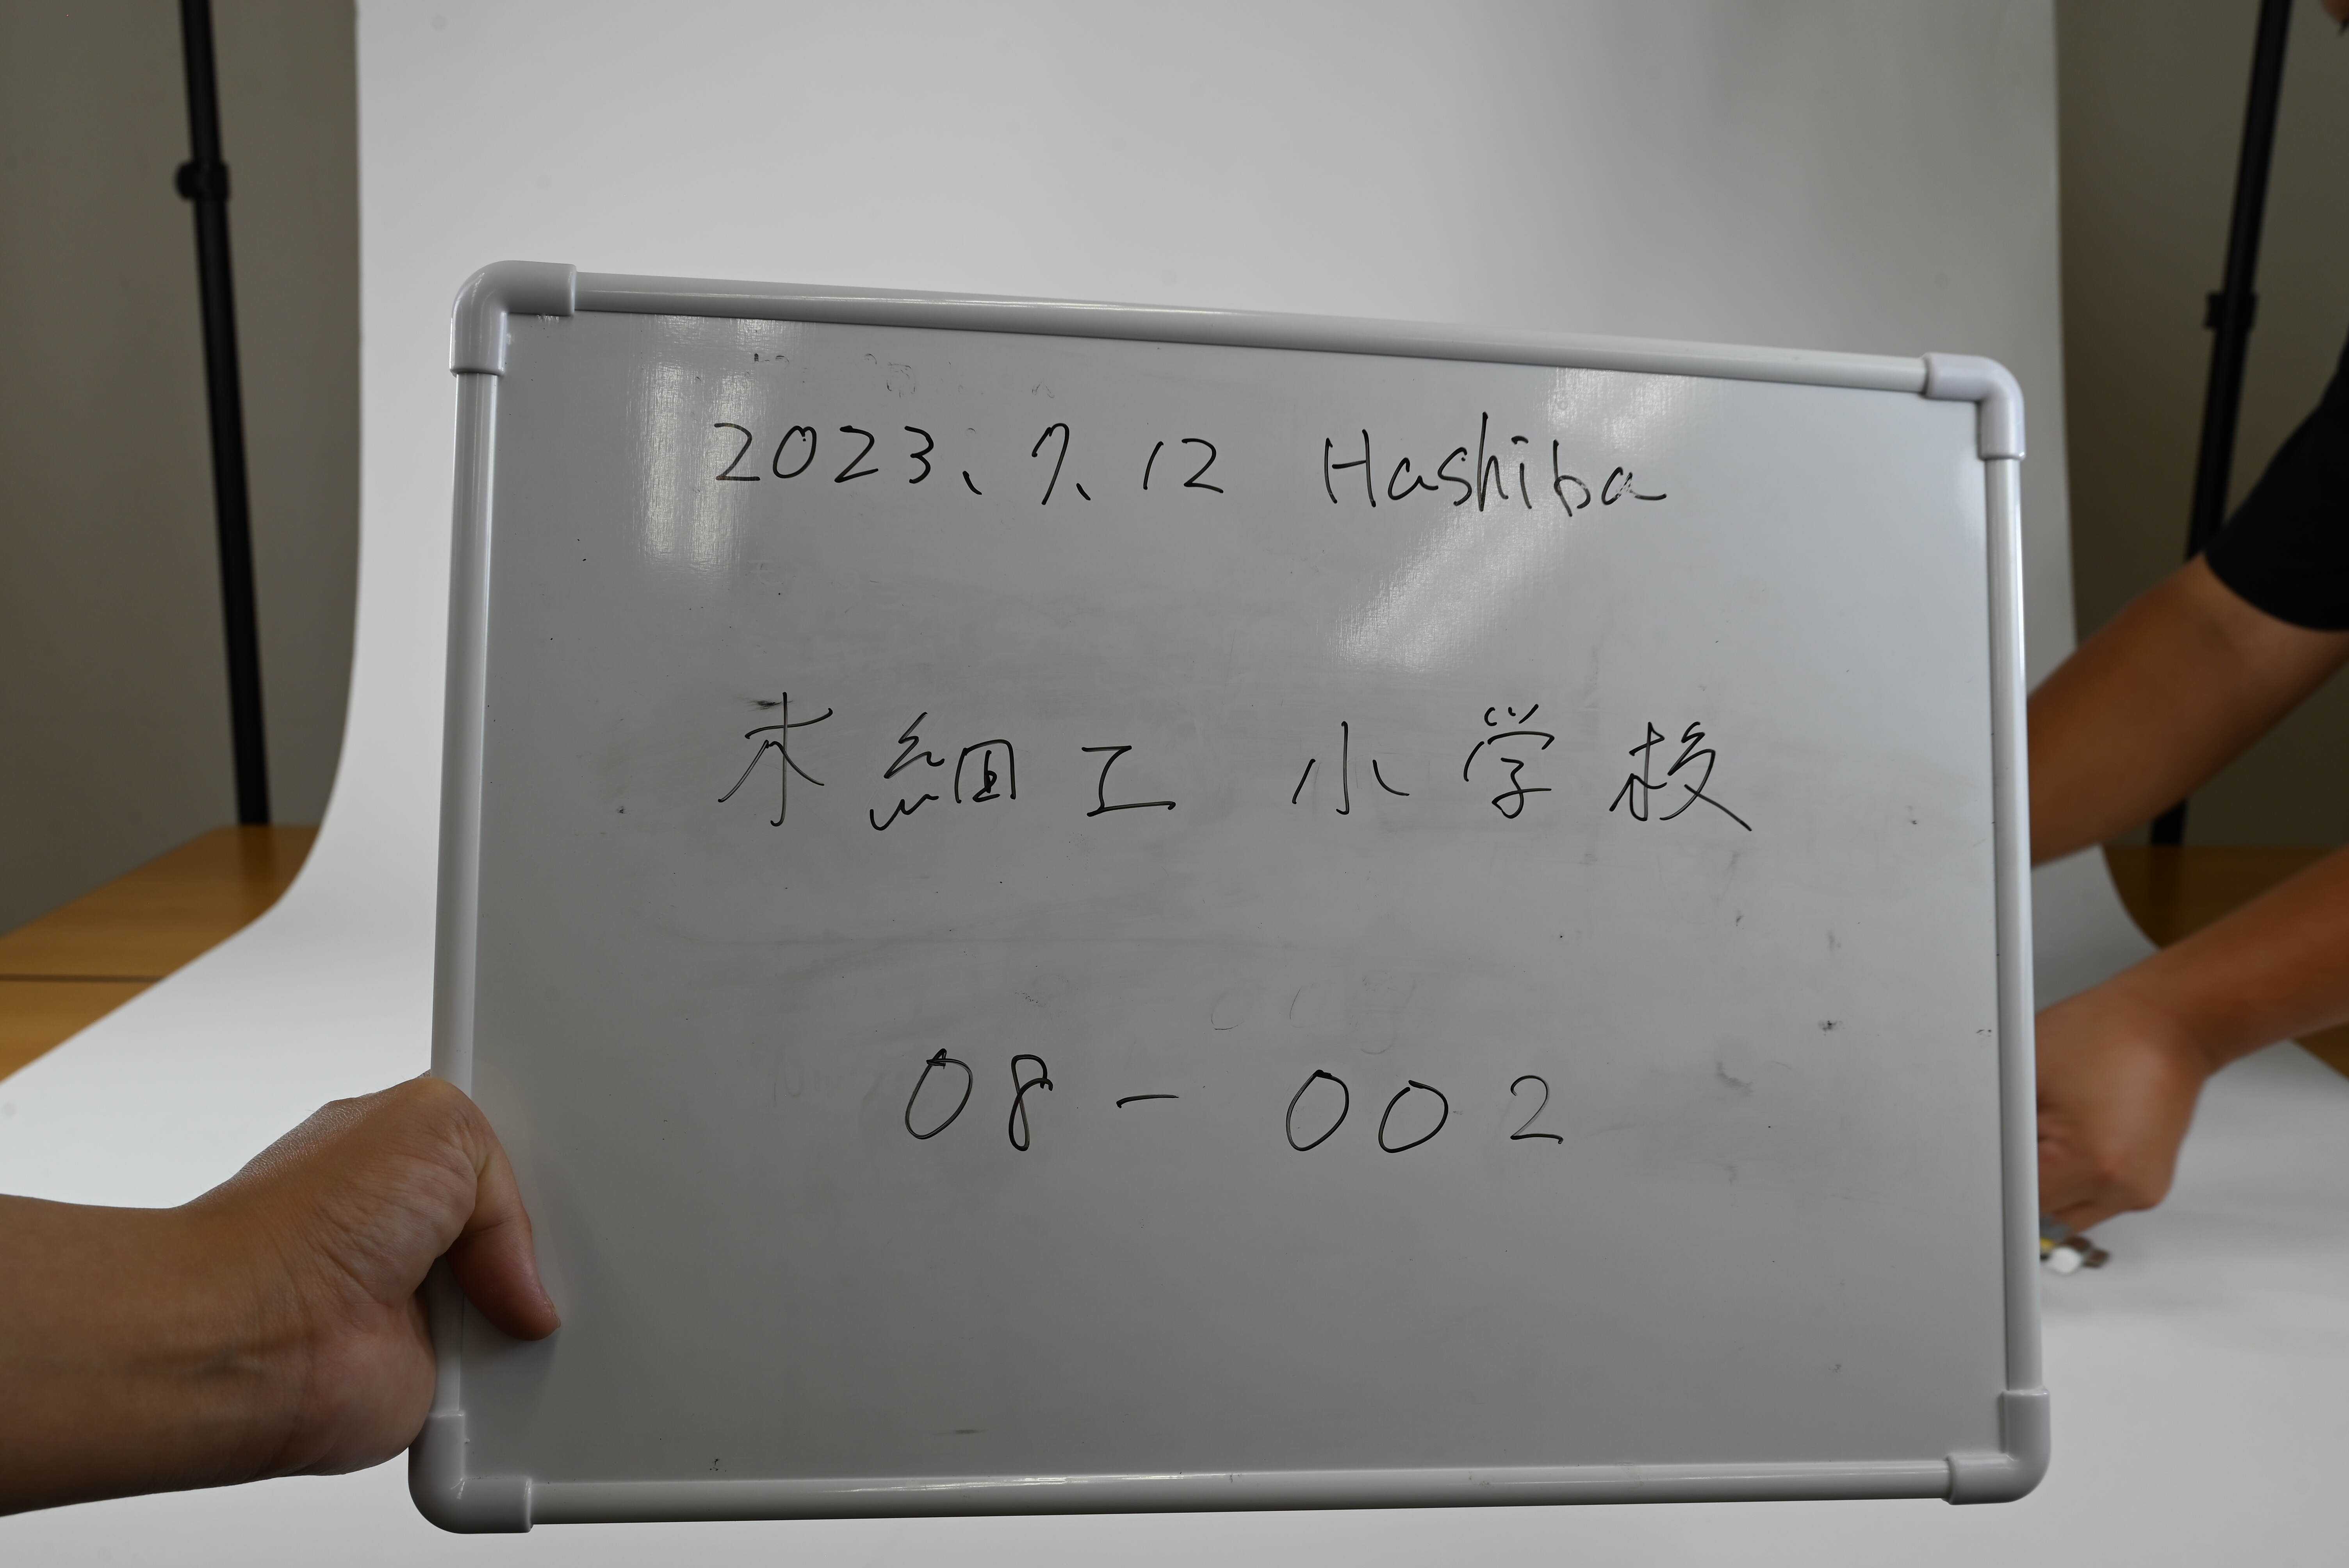 2023、7、12 Hashiba
木細工 小学校
08-002